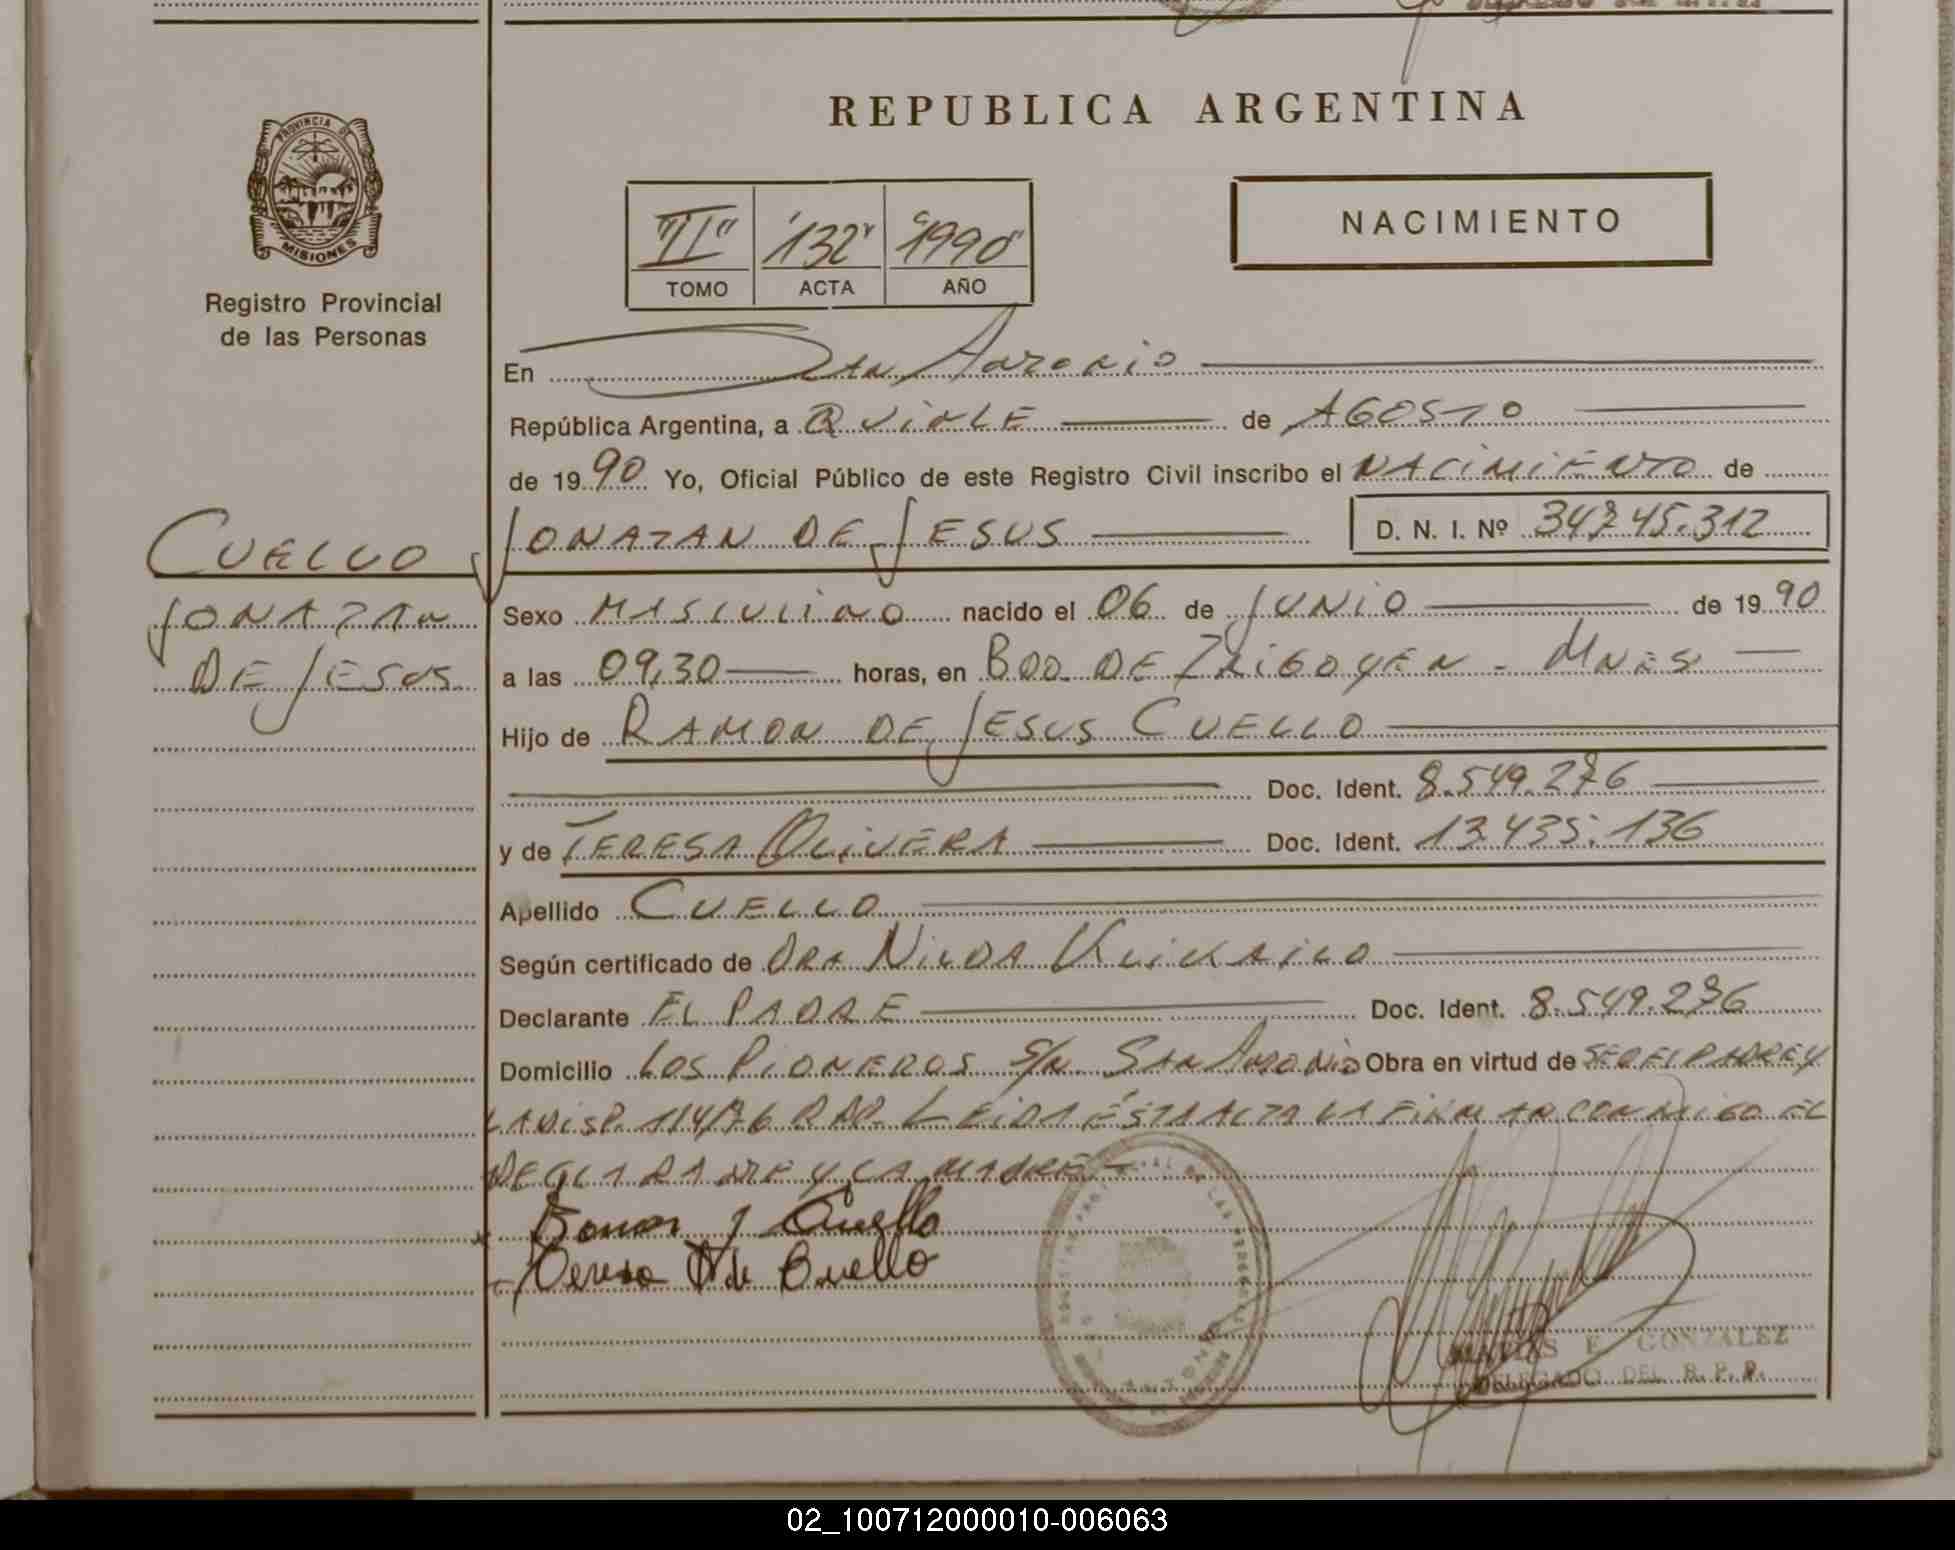 REPUBLICA ARGENTINA
PROVINCIA DE
MISIONES
Registro Provincial
de las Personas
NACIMIENTO
"II" "132" "1990"
TOMO ACTA AÑO
En San Antonio
República Argentina, a QUINCE de AGOSTO
de 1990 Yo, Oficial Público de este Registro Civil inscribo el NACIMIENTO de
JONATAN DE JESUS D. N. I. Nº 34.745.312
CUELLO
JONATAN
DE JESUS
Sexo MASCULINO nacido el 06 de JUNIO de 1990
a las 09,30 horas, en BDO. DE IRIGOYEN - MNES
Hijo de RAMON DE JESUS CUELLO
Doc. Ident. 8.549.276
y de TERESA OLIVERA Doc. Ident. 13.435.136
Apellido CUELLO
Según certificado de DRA NILDA
Declarante EL PADRE Doc. Ident. 8.549.276
Domicilio LOS PIONEROS S/N. SAN ANTONIO Obra en virtud de SER EL PADRE Y
LA DISP. 114/76 RPP. LEIDA ÉSTA ACTA LA FIRMAN CONMIGO EL
DECLARANTE Y LA MADRE -
Ramon J Cuello
Teresa de Cuello
MATIAS E. GONZALEZ
DELEGADO DEL R. P. P.
02_100712000010-006063